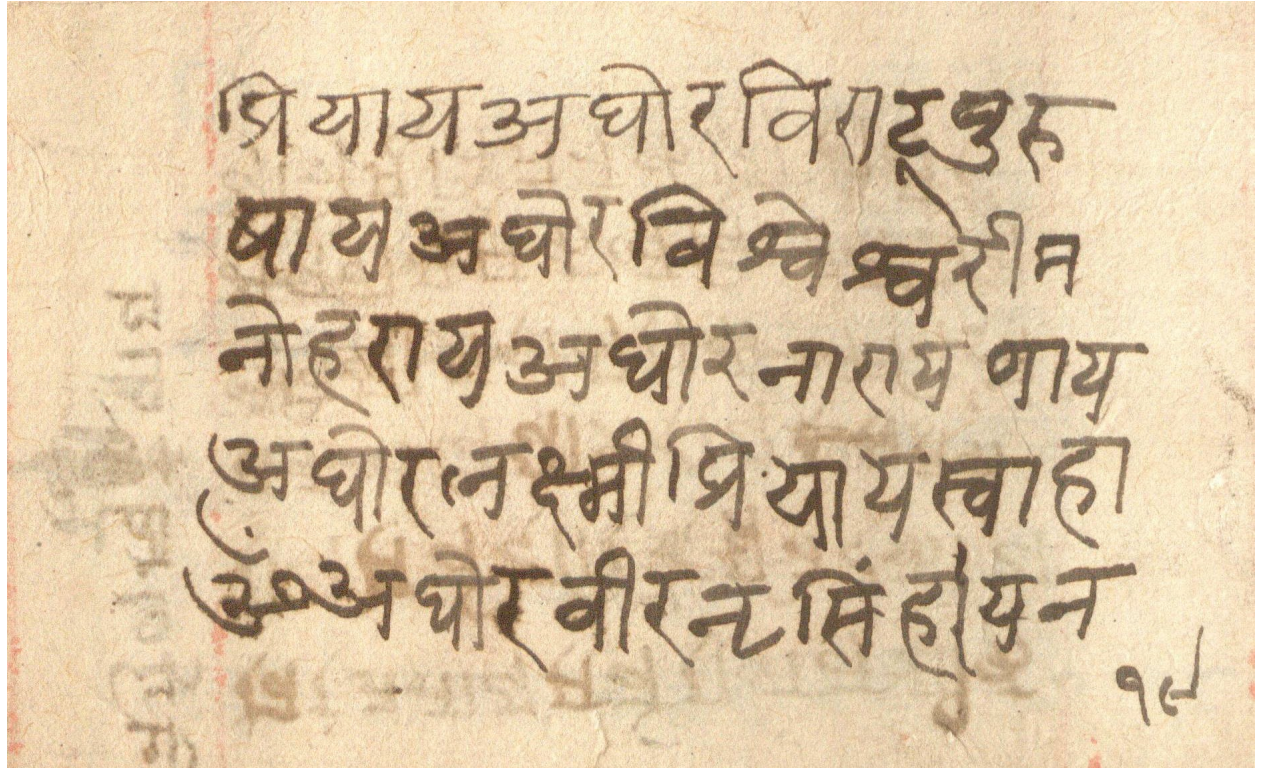 प्रियायअघोरविराट्पुरु
षायअघोरविश्वेश्वरीम
नोहरायअघोरनारायणाय
अघोरलक्ष्मीप्रियायस्वाहा
ॐअघोरवीरनृसिंहायन
१९